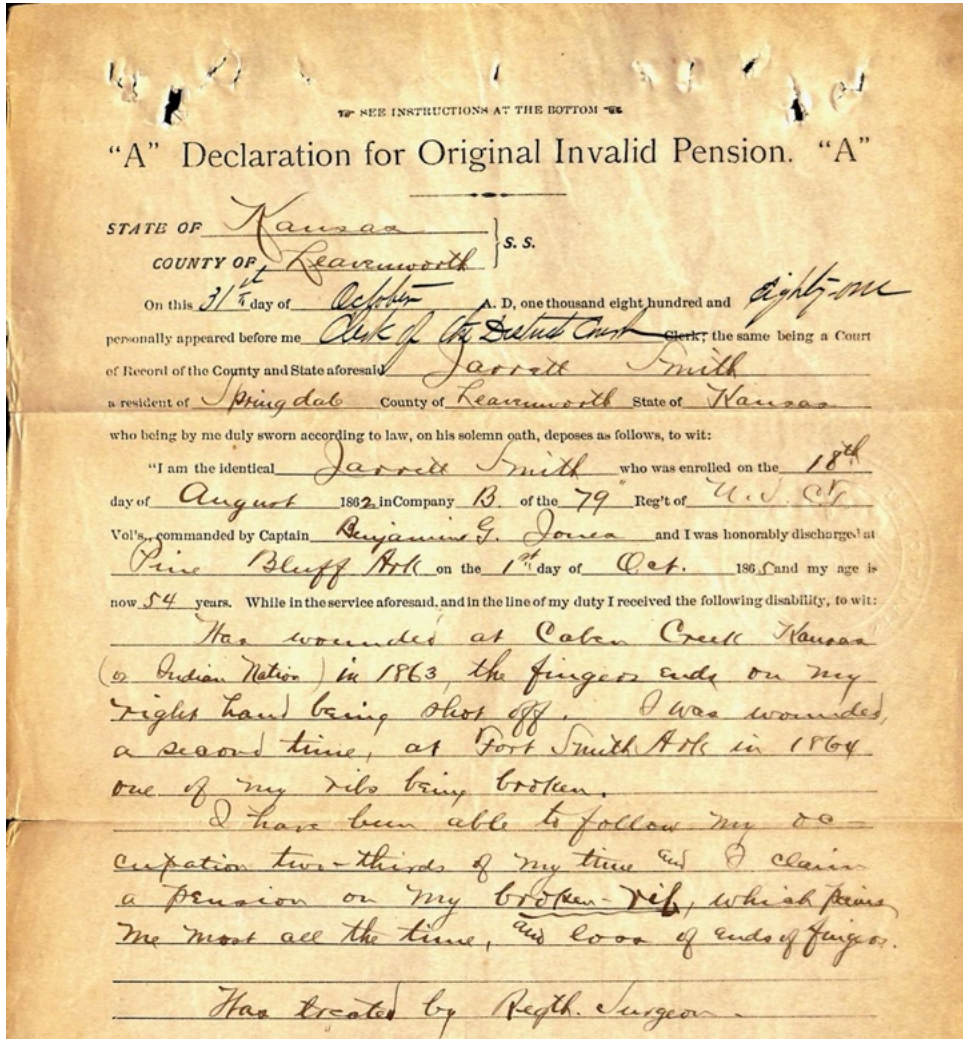 SEE INSTRUCTIONS AT THE BOTTOM
"A" Declaration for Original Invalid Pension. "A"
STATE OF Kansas
S. S.
COUNTY OF Leavenworth
On this 31st day of October A. D, one thousand eight hundred and eighty-one
personally appeared before me Clerk of the District Court Clerk, the same being a Court
of Record of the County and State aforesaid Jarrett Smith
a resident of Springdale County of Leavenworth State of Kansas
who being by me duly sworn according to law, on his solemn oath, deposes as follows, to wit:
"I am the identical Jarrett Smith who was enrolled on the 18th
day of August 1862 in Company B. of the 79" Reg't of U. S. Cd.
Vol's., commanded by Captain Benjamin G. Jones and I was honorably discharged at
Pine Bluff Ark on the 1st day of Oct. 1865 and my age is
now 54 years. While in the service aforesaid, and in the line of my duty I received the following disability, to wit:
Was wounded at Caben Creek Kansas
(or Indian Nation) in 1863, the fingers ends on my
right hand being shot off. I was wounded,
a second time, at Fort Smith Ark in 1864
one of my ribs being broken.
I have been able to follow my oc-
cupation two-thirds of my time and I claim
a pension on my broken-rib, which pains
me most all the time, and loss of ends of fingers.
Was treated by Regth. Surgeon.